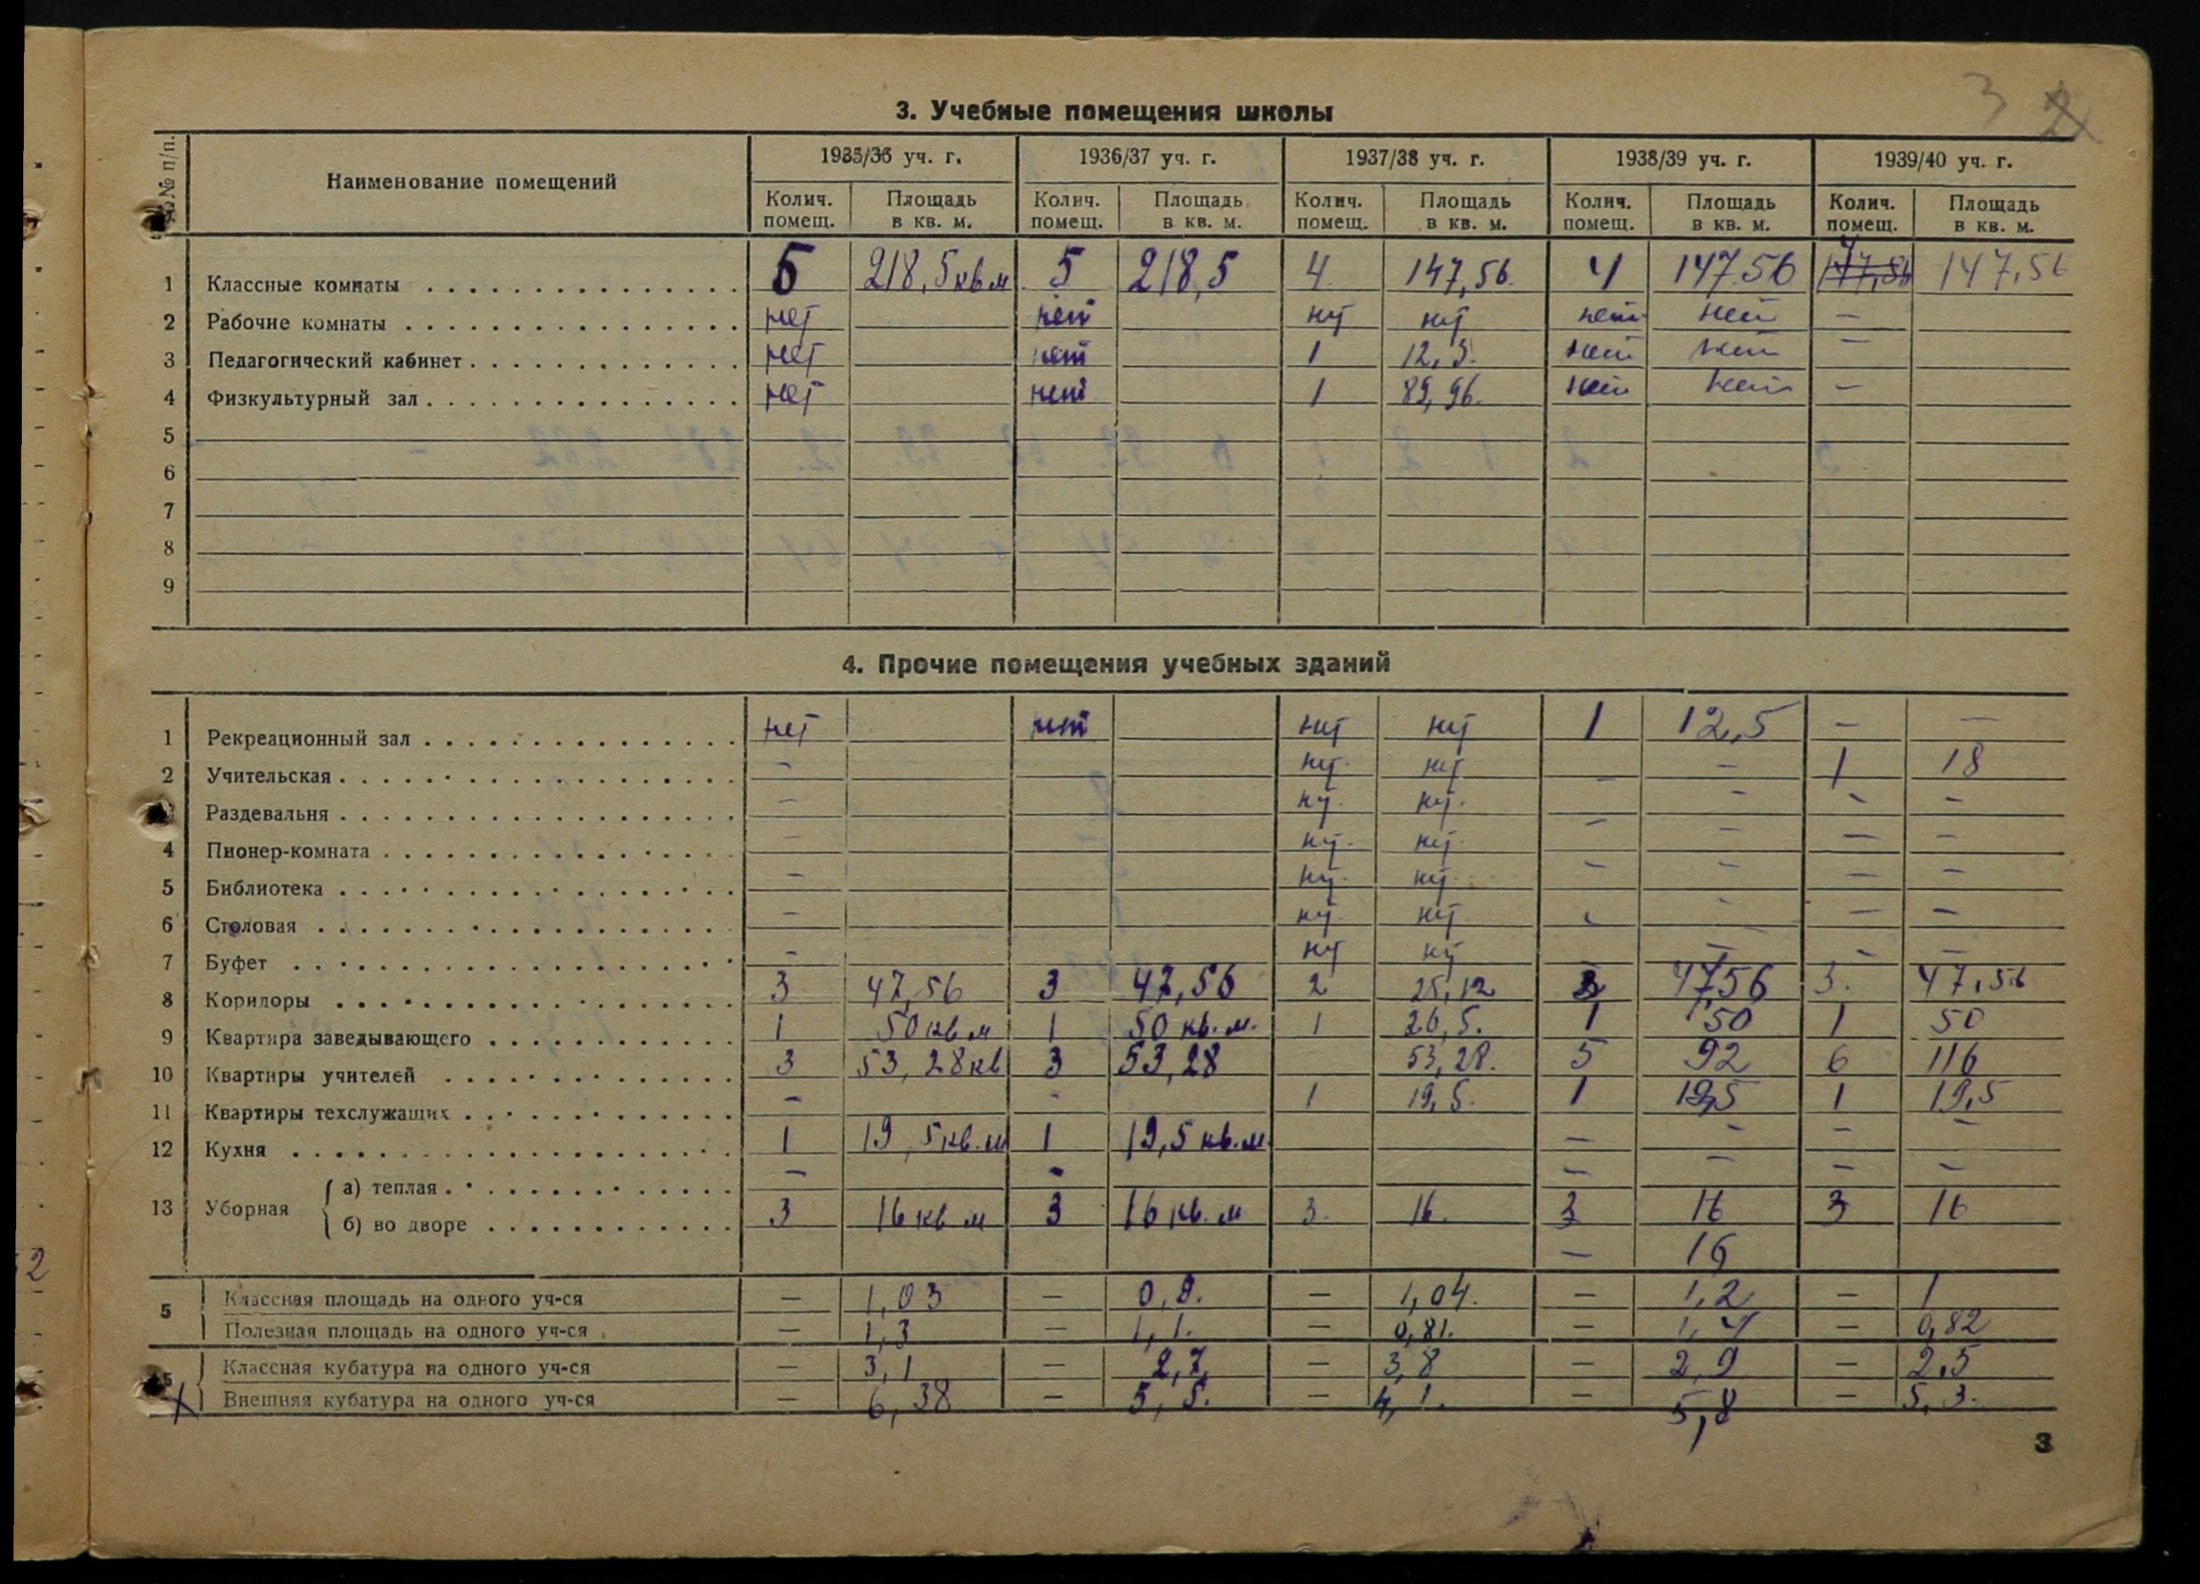 3 2
3. Учебные помещения школы
№№ п/п. Наименование помещений 1935/36 уч. г. 1936/37 уч. г. 1937/38 уч. г. 1938/39 уч. г. 1939/40 уч. г.
Колич. помещ. Площадь в кв. м. Колич. помещ. Площадь в кв. м. Колич. помещ. Площадь в кв. м. Колич. помещ. Площадь в кв. м. Колич. помещ. Площадь в кв. м.
1 Классные комнаты 5 218,5 кв м 5 218,5 4 147,56 4 147.56 4 147,56 147,56
2 Рабочие комнаты нет нет нет нет нет нет —
3 Педагогический кабинет нет нет 1 12,5. нет нет —
4 Физкультурный зал нет нет 1 89,96. нет нет —
5
6
7
8
9
4. Прочие помещения учебных зданий
1 Рекреационный зал нет нет нет нет 1 12,5 — —
2 Учительская — нет нет — — 1 18
Раздевальня — нет нет — — — —
4 Пионер-комната — нет нет — — — —
5 Библиотека — нет нет — — — —
6 Столовая — нет нет — — — —
7 Буфет — нет нет — — — —
8 Коридоры 3 47,56 3 47,56 2 25,12 3 47,56 3. 47,56
9 Квартира заведывающего 1 50 кв м 1 50 кв. м. 1 26,5. 1 50 1 50
10 Квартиры учителей 3 53,28 кв 3 53,28 53,28. 5 92 6 116
11 Квартиры техслужащих — - 1 19,5. 1 19,5 1 19,5
12 Кухня 1 19,5 кв. м 1 19,5 кв. м. — — — —
13 Уборная а) теплая — - — — — —
б) во дворе 3 16 кв м 3 16 кв. м 3. 16. 3 16 3 16
— 16
5 Классная площадь на одного уч-ся — 1,03 — 0,9. — 1,04. — 1,2 — 1
Полезная площадь на одного уч-ся — 1,3 — 1,1. — 0,81. — 1,4 — 0,82
Классная кубатура на одного уч-ся — 3,1 — 2,7 — 3,8 — 2,9 — 2,5
Внешняя кубатура на одного уч-ся — 6,38 — 5,5. — 4,1. — 5,8 — 5,3.
3